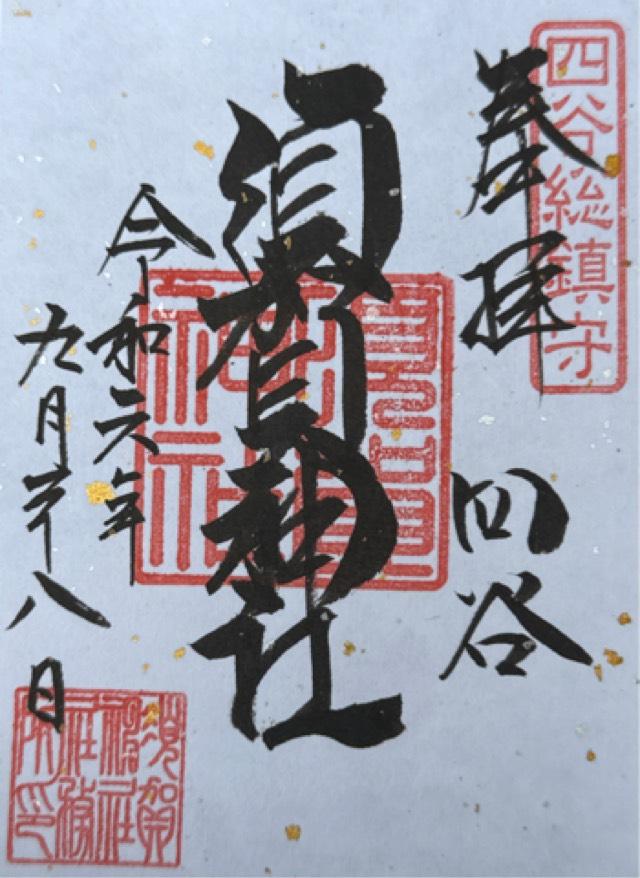 四谷総鎮守
奉拝
四谷
須賀神社
須賀神社
令和元年
九月廿八日
須賀神社務所印